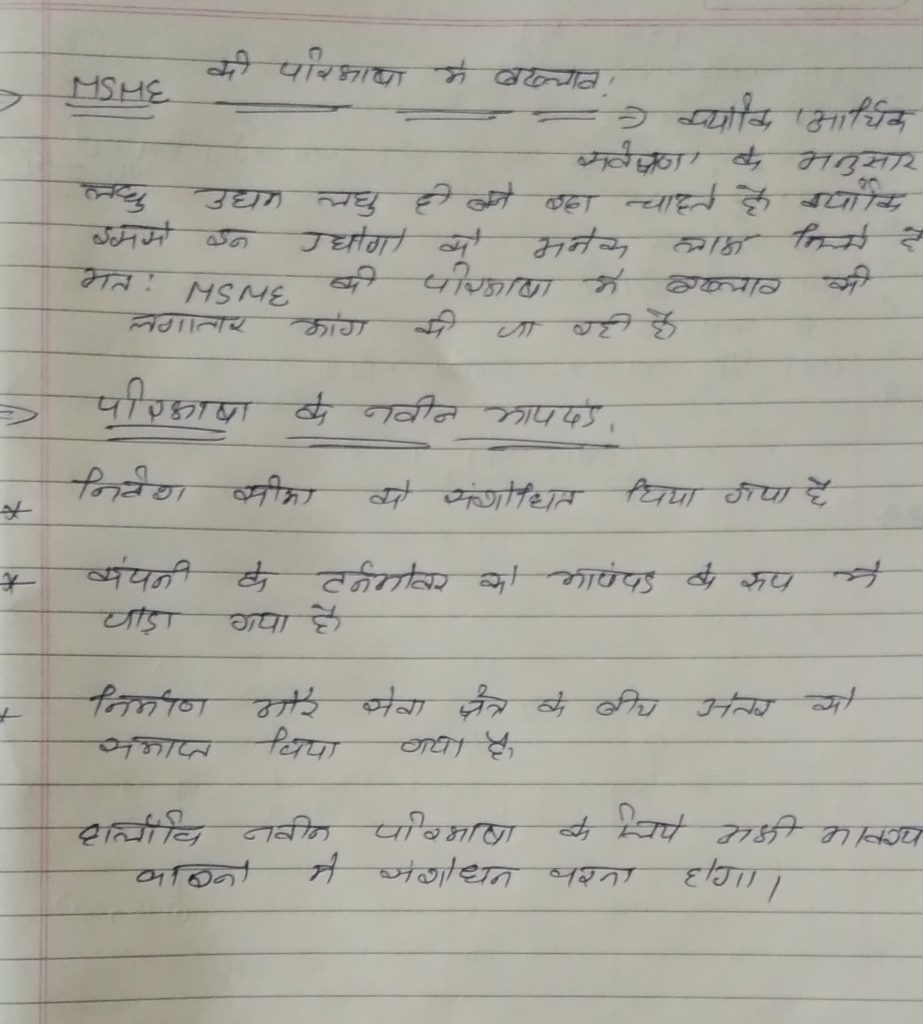 MSME की परिभाषा मे बदलाव!
⇒ क्योंकि 'आर्थिक
सर्वेक्षण' के अनुसार
लघु उद्यम लघु ही बने रहना चाहते है क्योंकि
इससे इन उद्योगो को अनेक लाभ मिलते है
अतः MSME की परिभाषा मे बदलाव की
लगातार मांग की जा रही है
⇒ परिभाषा के नवीन मापदंड.
* निवेश सीमा को संशोधित किया गया है
* कंपनी के टर्नओवर को मापदंड के रूप मे
जोड़ा गया है
* निर्माण और सेवा क्षेत्र के बीच अंतर को
समाप्त किया गया है
हालाँकि नवीन परिभाषा के लिये अभी आवश्य
कानूनो मे संशोधन करना होगा।